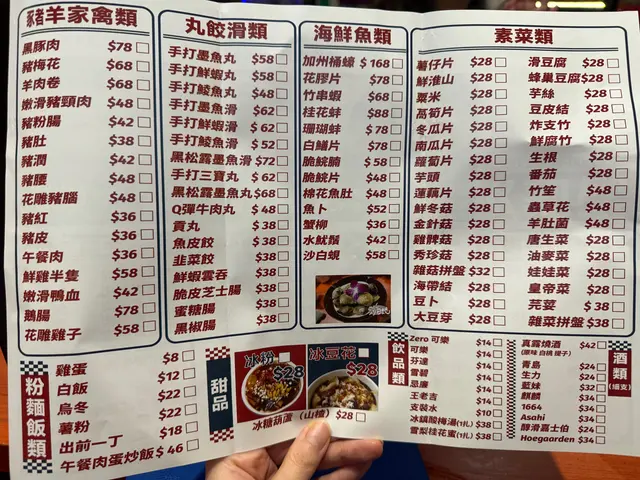 豕豬羊家禽類
黑豚肉 $78
豬梅花 $68
羊肉卷 $68
嫩滑豬頸肉 $48
豬粉腸 $42
豬肚 $38
豬潤 $42
豬腰 $48
花雕豬腦 $48
豬紅 $36
豬皮 $36
午餐肉 $36
鮮雞半隻 $58
嫩滑鴨血 $42
鵝腸 $78
花雕雞子 $58
丸餃滑類
手打墨魚丸 $58
手打鮮蝦丸 $58
手打鯪魚丸 $48
手打墨魚滑 $62
手打鮮蝦滑 $62
手打鯪魚滑 $52
黑松露墨魚滑 $72
手打三寶丸 $62
黑松露墨魚丸 $68
Q彈牛肉丸 $48
貢丸 $38
魚皮餃 $38
韭菜餃 $38
鮮蝦雲吞 $38
脆皮芝士腸 $38
蜜糖腸 $38
黑椒腸 $38
海鮮魚類
加州桶蠔 $168
花膠片 $78
竹串蝦 $68
桂花蚌 $88
珊瑚蚌 $78
白鱔片 $78
脆鯇腩 $58
脆鯇片 $48
棉花魚肚 $48
魚卜 $52
蟹柳 $36
水魷鬚 $42
沙白蜆 $58
素菜類
薯仔片 $28
鮮淮山 $28
粟米 $28
萵筍片 $28
冬瓜片 $28
南瓜片 $28
蘿蔔片 $28
芋頭 $28
蓮藕片 $28
鮮冬菇 $28
金針菇 $28
雞髀菇 $28
秀珍菇 $28
雜菇拼盤 $32
海帶結 $28
豆卜 $28
大豆芽 $28
滑豆腐 $28
蜂巢豆腐 $28
芋絲 $28
豆皮結 $28
炸支竹 $28
鮮腐竹 $28
生根 $28
番茄 $28
竹笙 $48
蟲草花 $48
羊肚菌 $48
唐生菜 $28
油麥菜 $28
娃娃菜 $28
皇帝菜 $28
芫荽 $38
雜菜拼盤 $38
粉麵飯類
雞蛋 $8
白飯 $12
烏冬 $22
薯粉 $22
出前一丁 $18
午餐肉蛋炒飯 $46
甜品
冰粉 $28
冰豆花 $28
冰糖葫蘆 (山楂) $28
飲品類
Zero 可樂 $14
可樂 $14
芬達 $14
雪碧 $14
忌廉 $14
王老吉 $14
支裝水 $10
冰鎮酸梅湯(1扎) $38
雪梨桂花蜜(1扎) $38
酒類
(細支)
真露燒酒 $42
(原味 白桃 提子)
青島 $24
生力 $24
藍妹 $32
麒麟 $34
1664 $34
Asahi $34
醇滑嘉士伯 $24
Hoegaarden $34